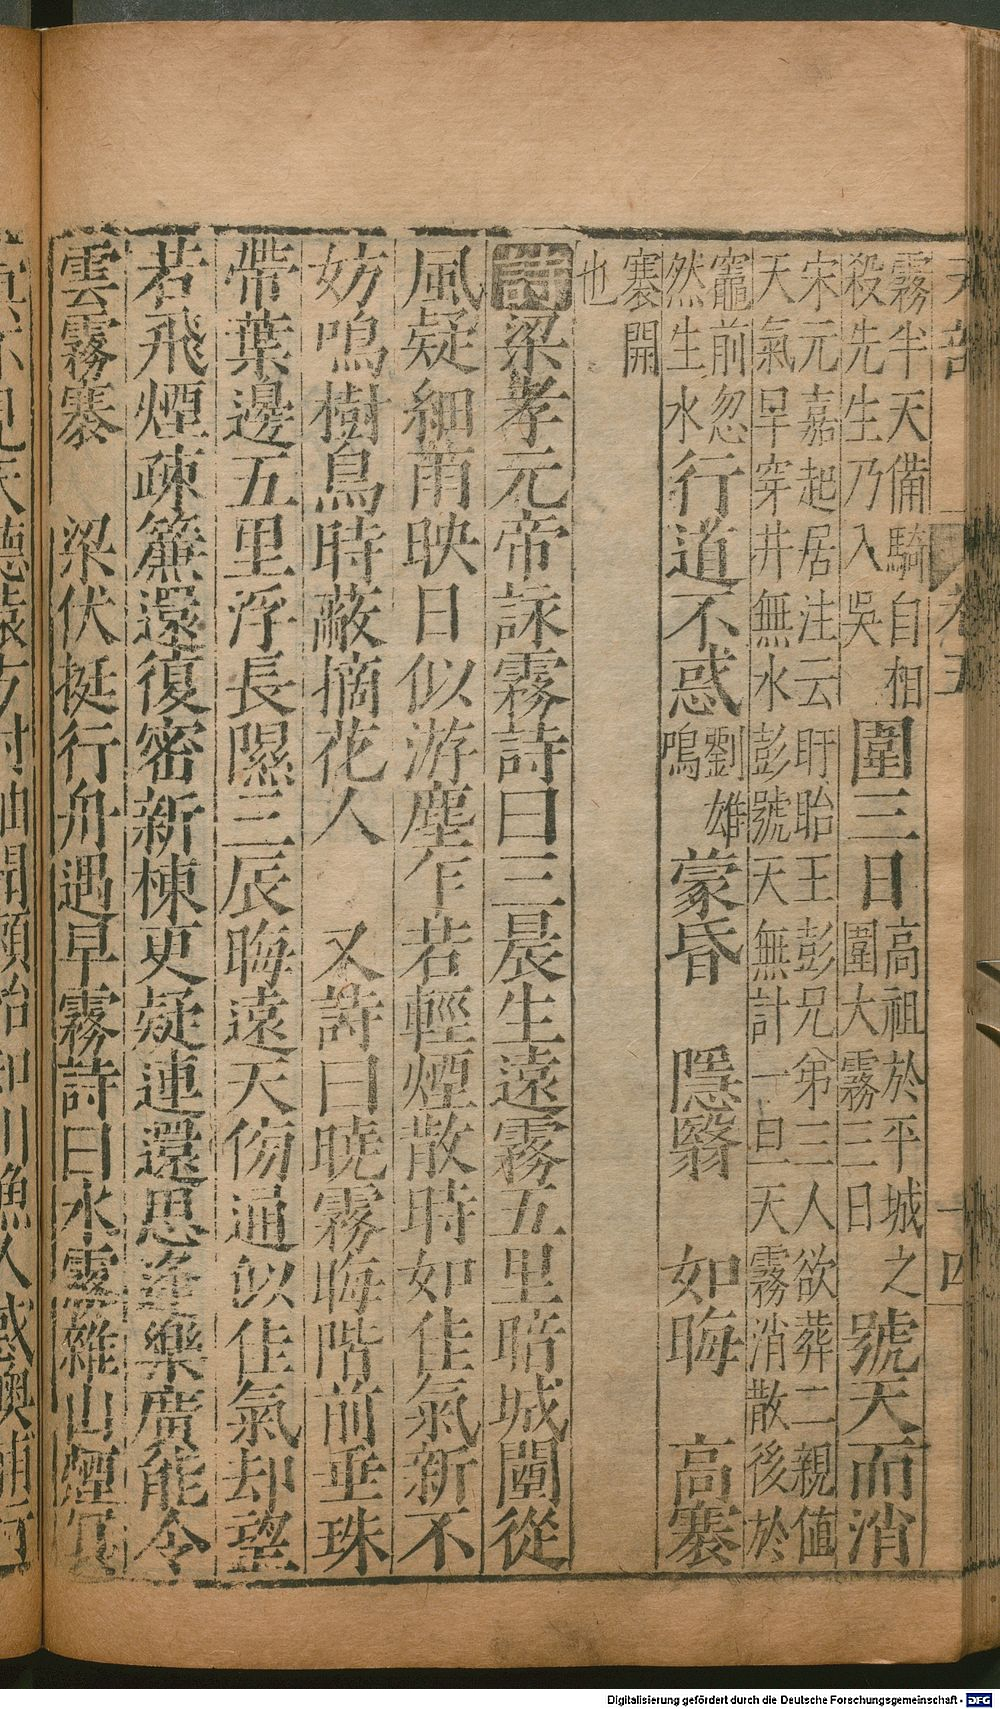 天部 卷五 十四
霧半天備騎自相
殺先生乃入吳
圍三日
高祖於平城之
圍大霧三日
號天而消
宋元嘉起居注云盱眙王彭兄弟二人欲葬二親值
天氣旱穿井無水彭號天無計一旦天霧消散後於
竈前忽
然生水
行道不惑
劉雄
鳴
蒙昏 隱翳 如晦 高褰
褰開
也
詩梁孝元帝詠霧詩曰三晨生遠霧五里晤城闉從
風疑細雨映日似游塵乍若輕煙散時如佳氣新不
妨鳴樹鳥時蔽摘花人 又詩曰曉霧晦階前垂珠
帶葉邊五里浮長隰三辰晦遠天傍通似佳氣却望
若飛煙疎簾還復密新棟更疑連還思逢樂廣能令
雲霧褰 梁伏挺行舟遇早霧詩曰水霧雜山煙冥
Digitalisierung gefördert durch die Deutsche Forschungsgemeinschaft - DFG